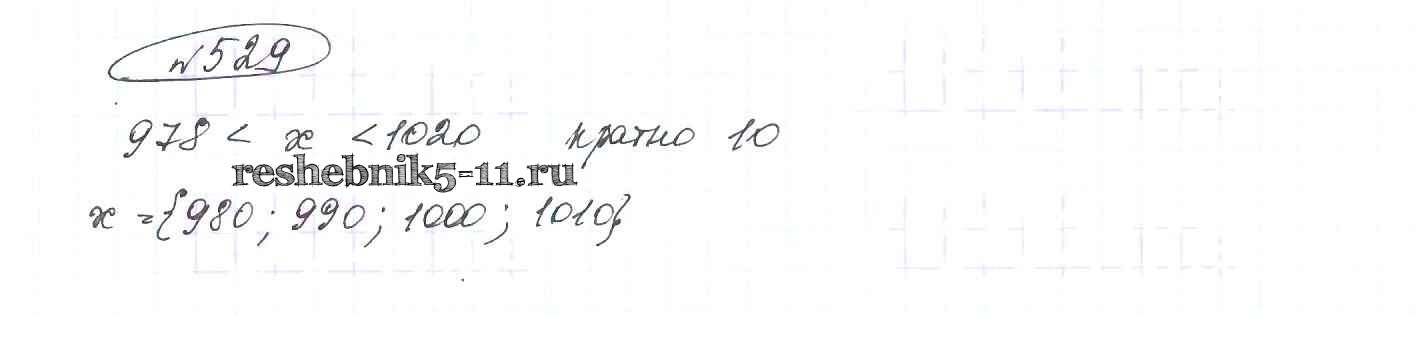 №529
978 < x < 1020 кратно 10
reshebnik5-11.ru
x = {980; 990; 1000; 1010}